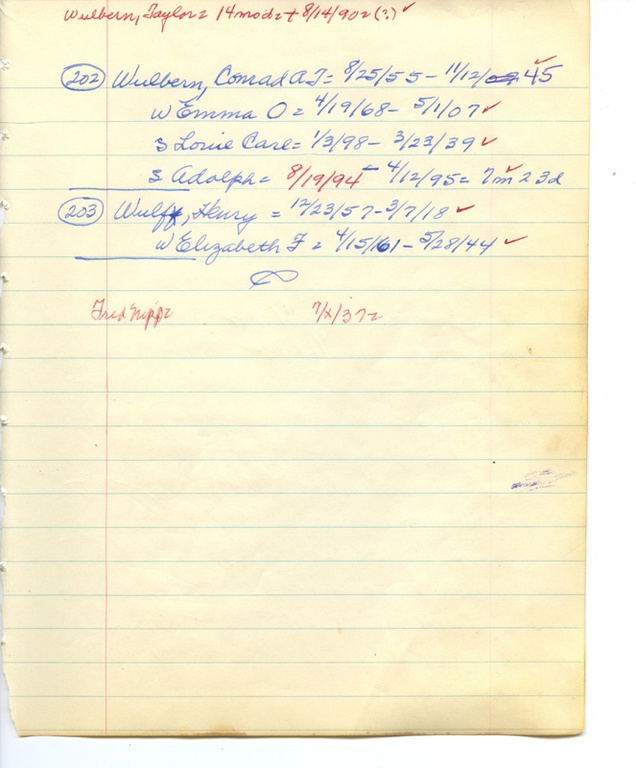 Wulbern, Taylor = 14 mo d = + 8/14/90 = (?) ✓
202 Wulbern, Conrad A J = 8/25/55 - 11/12/ 45 ✓
w Emma O = 4/19/68 - 5/1/07 ✓
s Louie Carl = 1/3/98 - 3/23/39 ✓
s Adolph = 8/19/94 - 4/12/95 = 7m 23d ✓
203 Wulff, Henry = 12/23/57 - 3/7/18 ✓
w Elizabeth F = 4/15/61 - 5/28/44 ✓
Fred 7/x/37 =